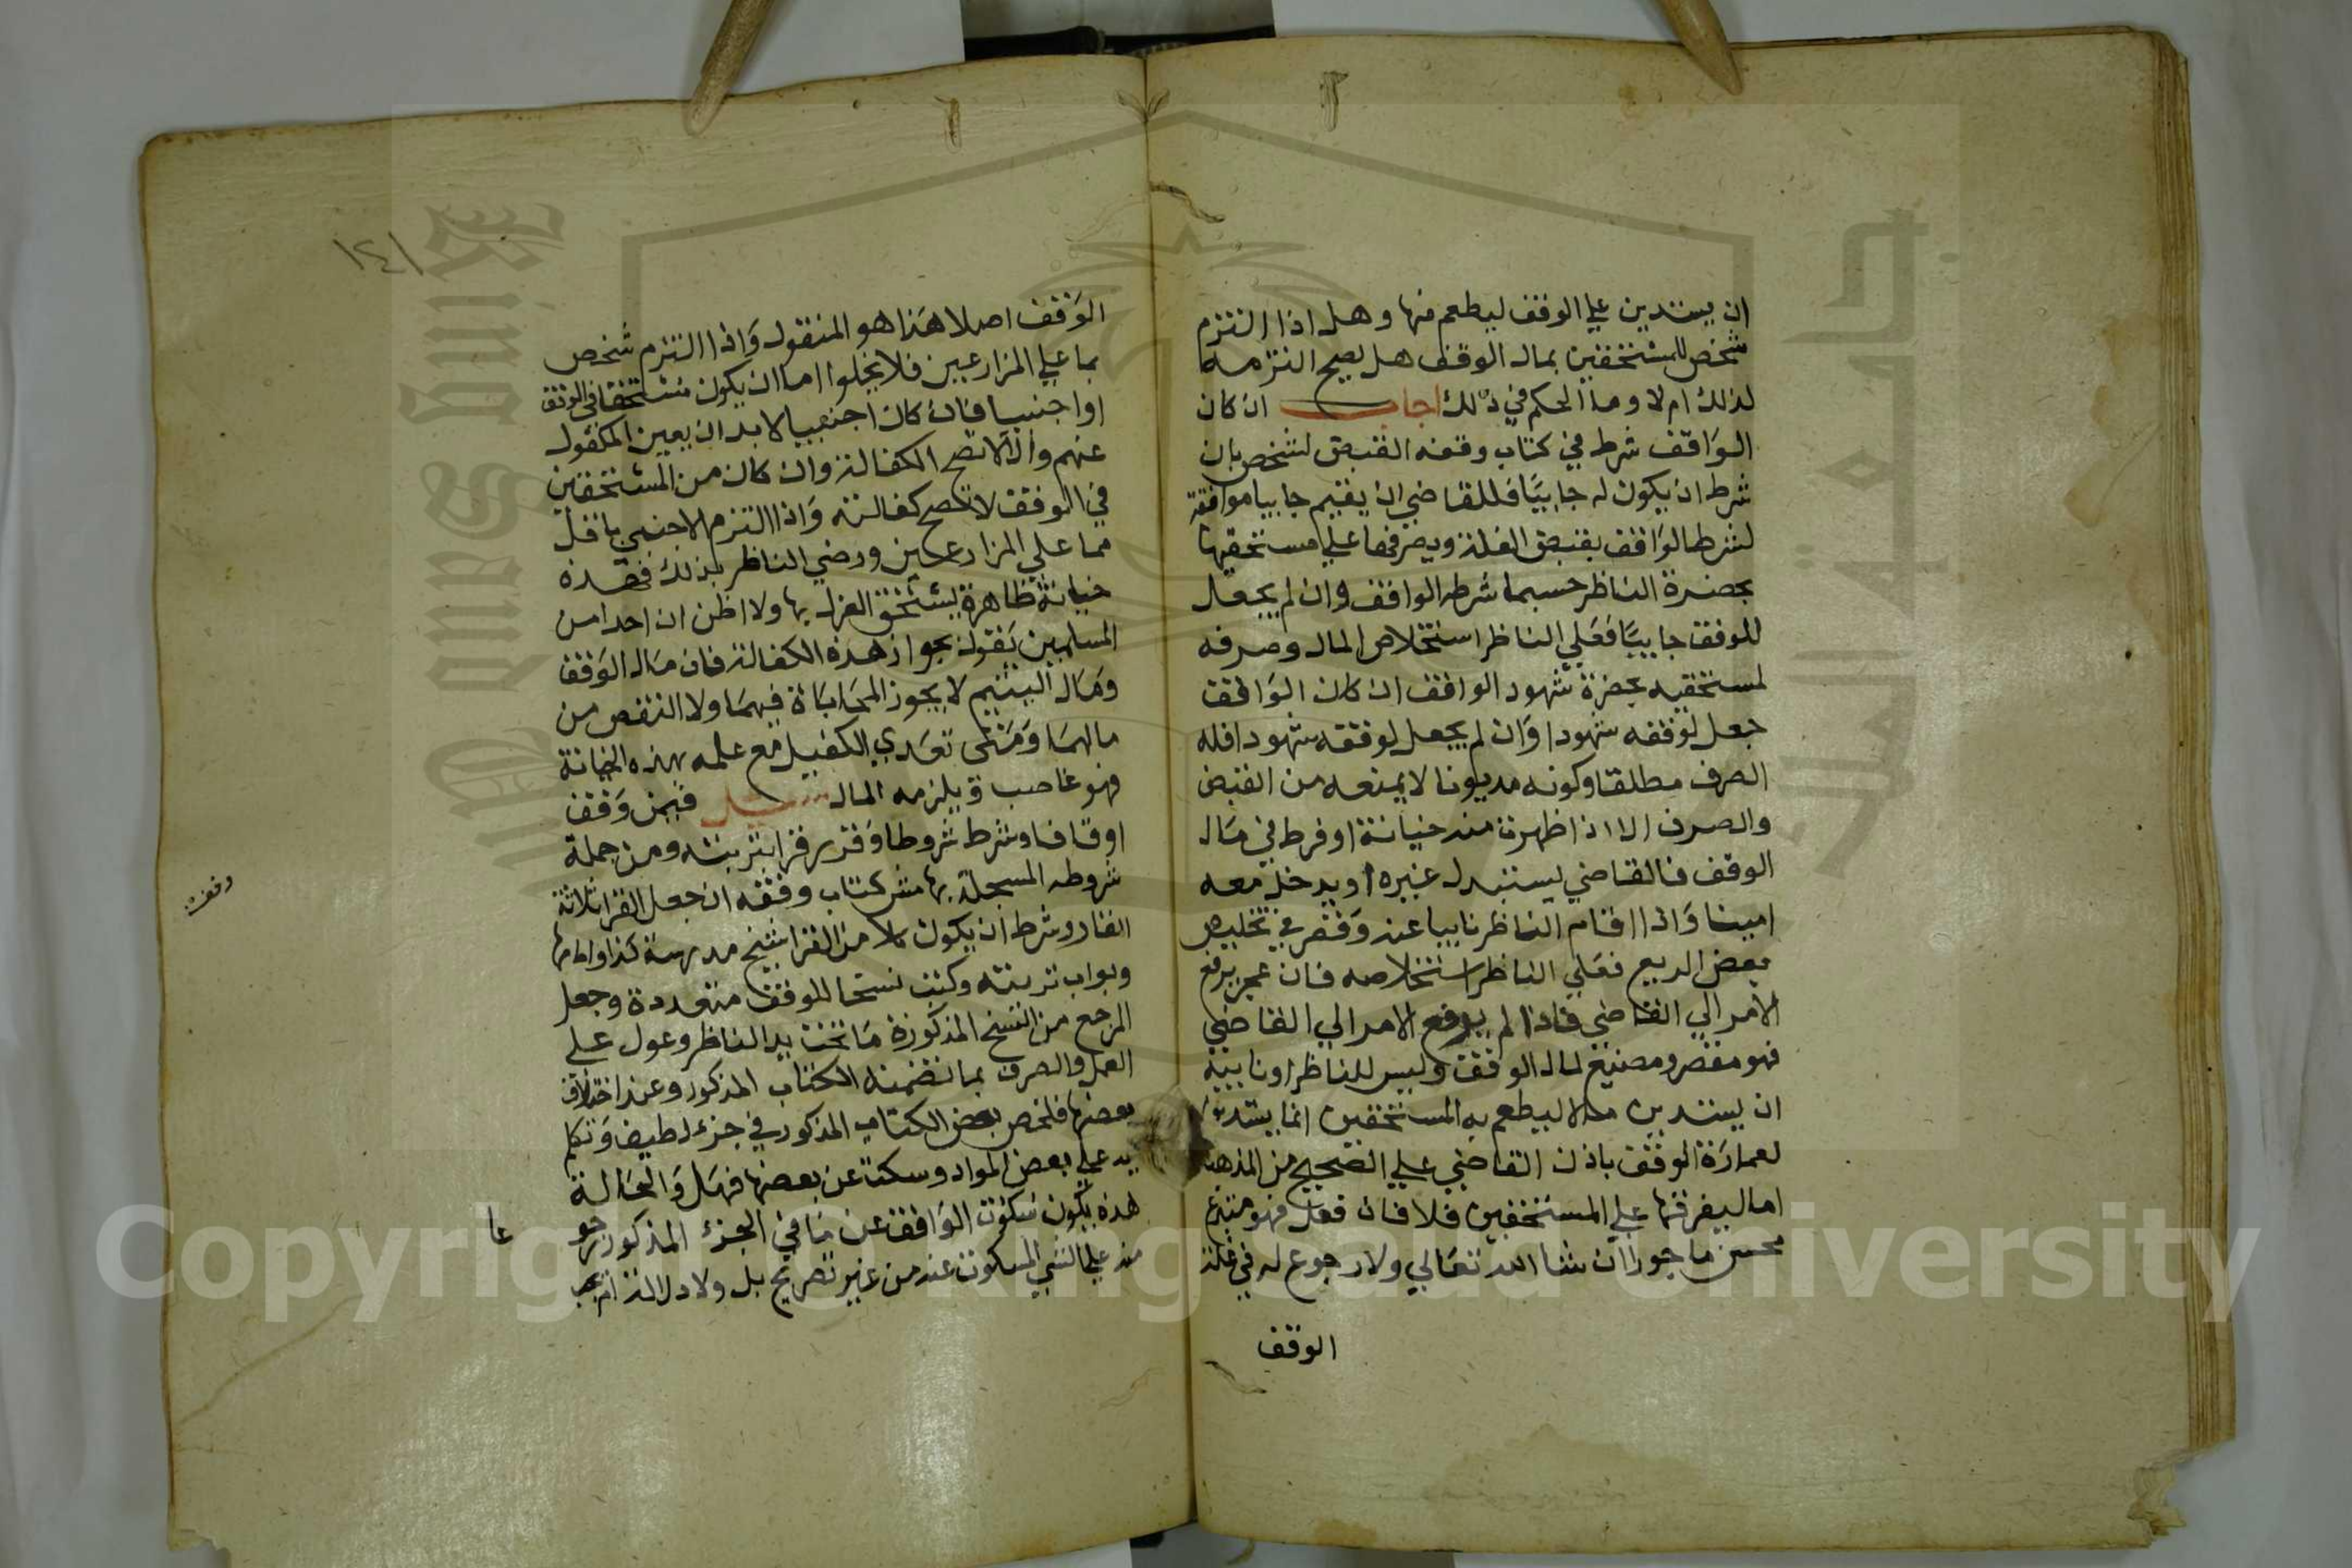 ان يستدين علي الوقف ليطعم منها وهل اذا التزم
شخص للمستحقين بمال الوقف هل يصح التزمه
لذلك ام لا وما الحكم في ذلك اجاب ان كان
الواقف شرط في كتاب وقفه القبض لشخص بان
شرط ان يكون له جابيا فللقاضي ان يقيم جابيا موافقة
لشرط الواقف بقبض الغلة ويصرفها علي مستحقيها
بحضرة الناظر حسبما شرطه الواقف وان لم يجعل
للوقف جابيا فعلي الناظر استخلاص المال وصرفه
لمستحقيه بحضرة شهود الواقف ان كان الواقف
جعل لوقفه شهودا وان لم يجعل لوقفه شهودا فله
الصرف مطلقا وكونه مديونا لا يمنعه من القبض
والصرف الا اذا ظهرت منه خيانة او فرط في مال
الوقف فالقاضي يستبدل غيره او يدخل معه
امينا واذا اقام الناظر نايبا عنه وقصر في تخليص
بعض الريع فعلي الناظر استخلاصه فان عجز يرفع
الامر الي القاضي فاذا لم يرفع الامر الي القاضي
فهو مقصر ومضيع لمال الوقف وليس للناظر او نايبه
ان يستدين مالا ليطعم به المستحقين انما يستدين
لعمارة الوقف باذن القاضي علي الصحيح من المذهب
اما ليفرقها علي المستحقين فلا فان فعل فهو متبرع
محسن ماجور ان شا الله تعالي ولا رجوع له في غلة
الوقف
١٤١
الوقف اصلا هذا هو المنقول واذا التزم شخص
بما علي المزارعين فلا يخلوا اما ان يكون مستحقا في الوقف
او اجنبيا فان كان اجنبيا لا بد ان يعين المكفول
عنهم والا لا تصح الكفالة وان كان من المستحقين
في الوقف لا تصح كفالته واذا التزم الاجنبي باقل
مما علي المزارعين ورضي الناظر بذلك فهذه
خيانة ظاهرة يستحق العزل بها ولا اظن ان احدا من
المسلمين يقول بجواز هذه الكفالة فان مال الوقف
ومال اليتيم لا يجوز المحاباة فيهما ولا النقص من
مالهما ومتي تعدي الكفيل مع علمه بهذه الخيانة
فهو غاصب ويلزمه المال سئل فيمن وقف
اوقافا وشرط شروطا وقرر قرا بتربته ومن جملة
شروطه المسجلة بها مش كتاب وقفه ان جعل القرا ثلاثة
انفار وشرط ان يكون كلا من القرا شيخ مدرسة كذا وامامها
وبواب تربته وكتب نسخا للوقف متعددة وجعل
المرجع من النسخ المذكورة ما تحت يد الناظر وعول علي
العمل والصرف بما تضمنه الكتاب المذكور وعند اختلاف
بعضها فلخص بعض الكتاب المذكور في جزء لطيف وتكلم
يد علي بعض المواد وسكت عن بعضها فهل والحالة
هذه يكون سكوت الواقف عن ما في الجزء المذكور رجو
عا
منه علي الشي المسكوت عنه من غير تصريح بل ولا دلالة ام يجب
وقف